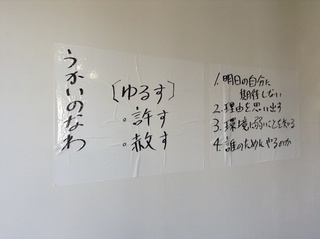 うかいのなわ
[ゆるす]
・許す
・赦す
1. 明日の自分に
期待しない
2. 理由を思い出す
3. 環境に弱いことを知る
4. 誰のためにやるのか